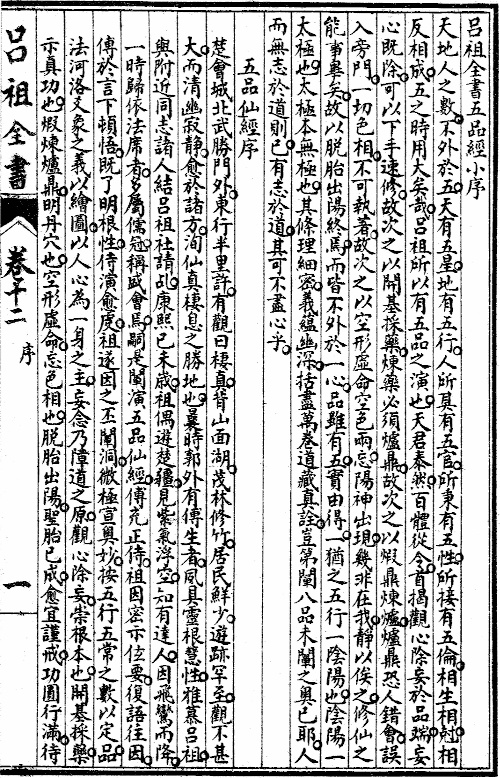 呂祖全書五品經小序
天地人之數不外於五天有五星地有五行人所具有五官所東有五性所接有五倫相生相尅相
反相成五之時用大矣哉呂祖所以有五品之演也天君泰然百體從令首揭觀心除妄於品端妄
心既除可以下手速修故次之以開基採藥煉藥必須爐鼎故次之以煅鼎煉爐爐鼎恐人錯會誤
入旁門一切色相不可執著故次之以空形虛命空色兩忘陽神出現幾非在我靜以俟之修仙之
能事畢矣故以脫胎出陽終焉而皆不外於一心品雖有五實由得一猶之五行一陰陽也陰陽一
太極也太極本無極也其條理細密義蘊幽深括盡萬卷道藏真詮豈第闡八品未闡之奧已耶人
而無志於道則已有志於道其可不盡心乎
五品仙經序
楚會城北武勝門外東行半里許有觀曰棲真背山面湖茂林修竹居民鮮少遊跡罕至觀不甚
大而清幽寂靜愈於諸方洵仙真棲息之勝地也曩時郭外有傳生者夙具靈根慧性雅慕呂祖
與附近同志諸人結呂祖社請乩康熙己未歲祖偶遊楚疆見紫氣浮空知有達人因飛鸞而降
一時歸依法席者多屬儒冠稱盛會焉嗣是闡演五品仙經傳克正侍祖因密示位要復語往因
傳於言下頓悟既了明根性侍演愈虔祖遂因之丕闡洞微極宣奧妙按五行五常之數以定品
法河洛爻象之義以繪圖以人心為一身之主妄念乃障道之原觀心除妄崇根本也開基採藥
示真功也煅煉爐鼎明丹穴也空形虛命忘色相也脫胎出陽聖胎已成愈宜謹戒功圓行滿待
呂祖全書
卷十二
序
一